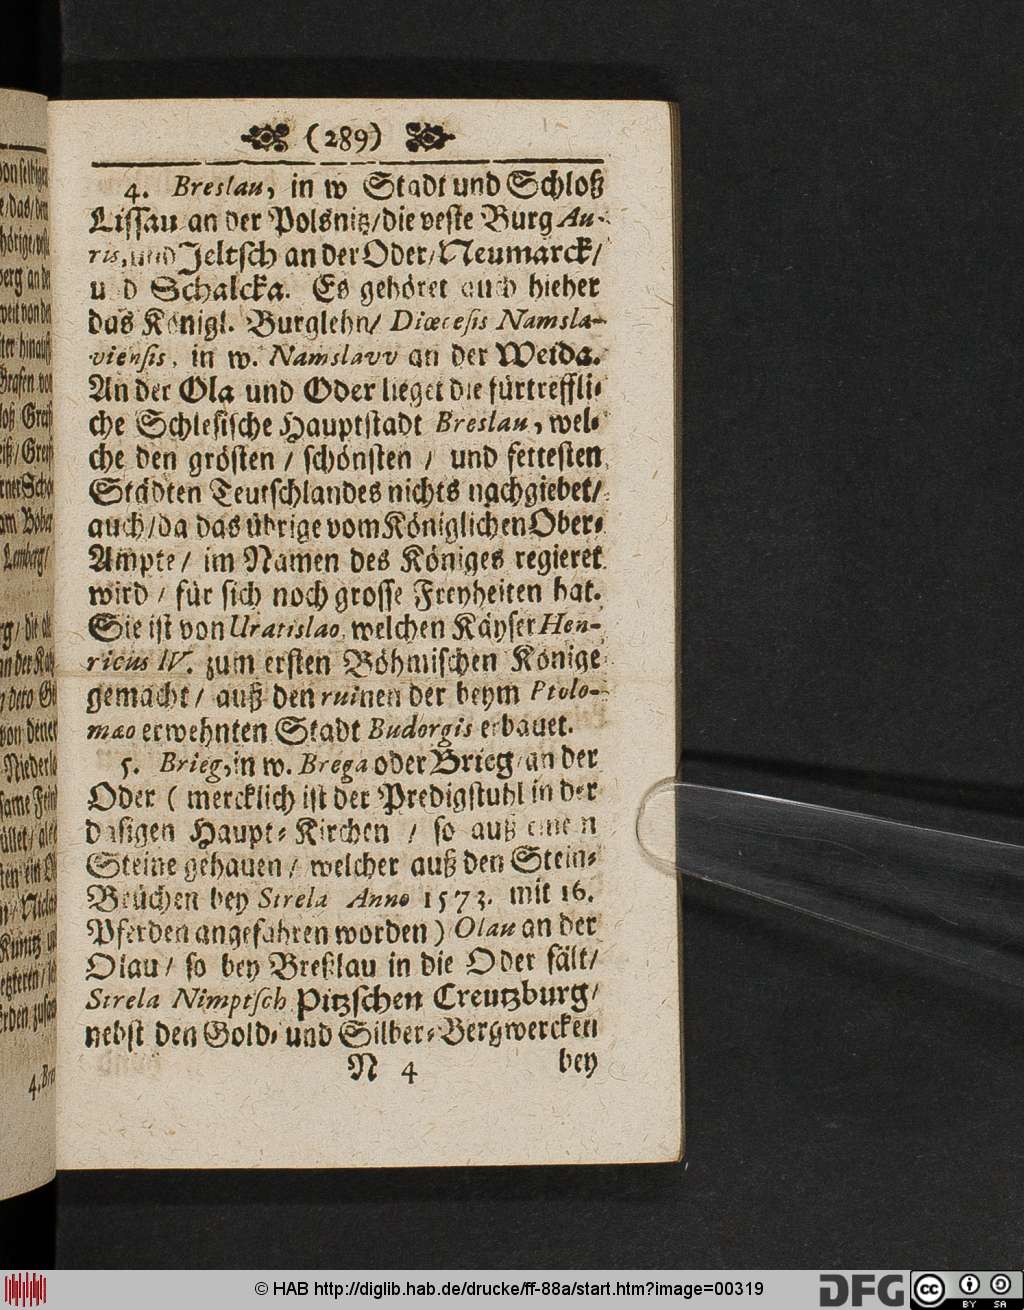 (289)
4. Breslau, in w Stadt und Schloß
Lissau an der Polsnitz/die veste Burg Au-
ris, und Jeltsch an der Oder/Neumarck/
u d Schalcka. Es gehöret auch hieher
das Königl. Burglehn/ Diœcesis Namsla-
viensis, in w. Namslavv an der Weida.
An der Ola und Oder lieget die fürtreffli-
che Schlesische Hauptstadt Breslau, wel-
che den grösten / schönsten / und fettesten
Städten Teutschlandes nichts nachgiebet/
auch/da das übrige vom Königlichen Ober-
Ampte/ im Namen des Königes regieret
wird / für sich noch grosse Freyheiten hat.
Sie ist von Uratislao, welchen Käyser Hen-
ricus IV. zum ersten Böhmischen Könige
gemacht/ auß den ruinen der beym Ptolo-
mæo erwehnten Stadt Budorgis erbauet.
5. Brieg, in w. Brega oder Brieg/an der
Oder ( mercklich ist der Predigstuhl in der
dasigen Haupt-Kirchen / so auß einem
Steine gehauen/ welcher auß den Stein-
Brüchen bey Strela Anno 1573. mit 16.
Pferden angefahren worden) Olau an der
Olau/ so bey Breßlau in die Oder fält/
Strela Nimptsch Pitzschen Creutzburg/
nebst den Gold- und Silber-Bergwercken
N 4 bey
4. Bres
© HAB http://diglib.hab.de/drucke/ff-88a/start.htm?image=00319
DFG
cc BY SA